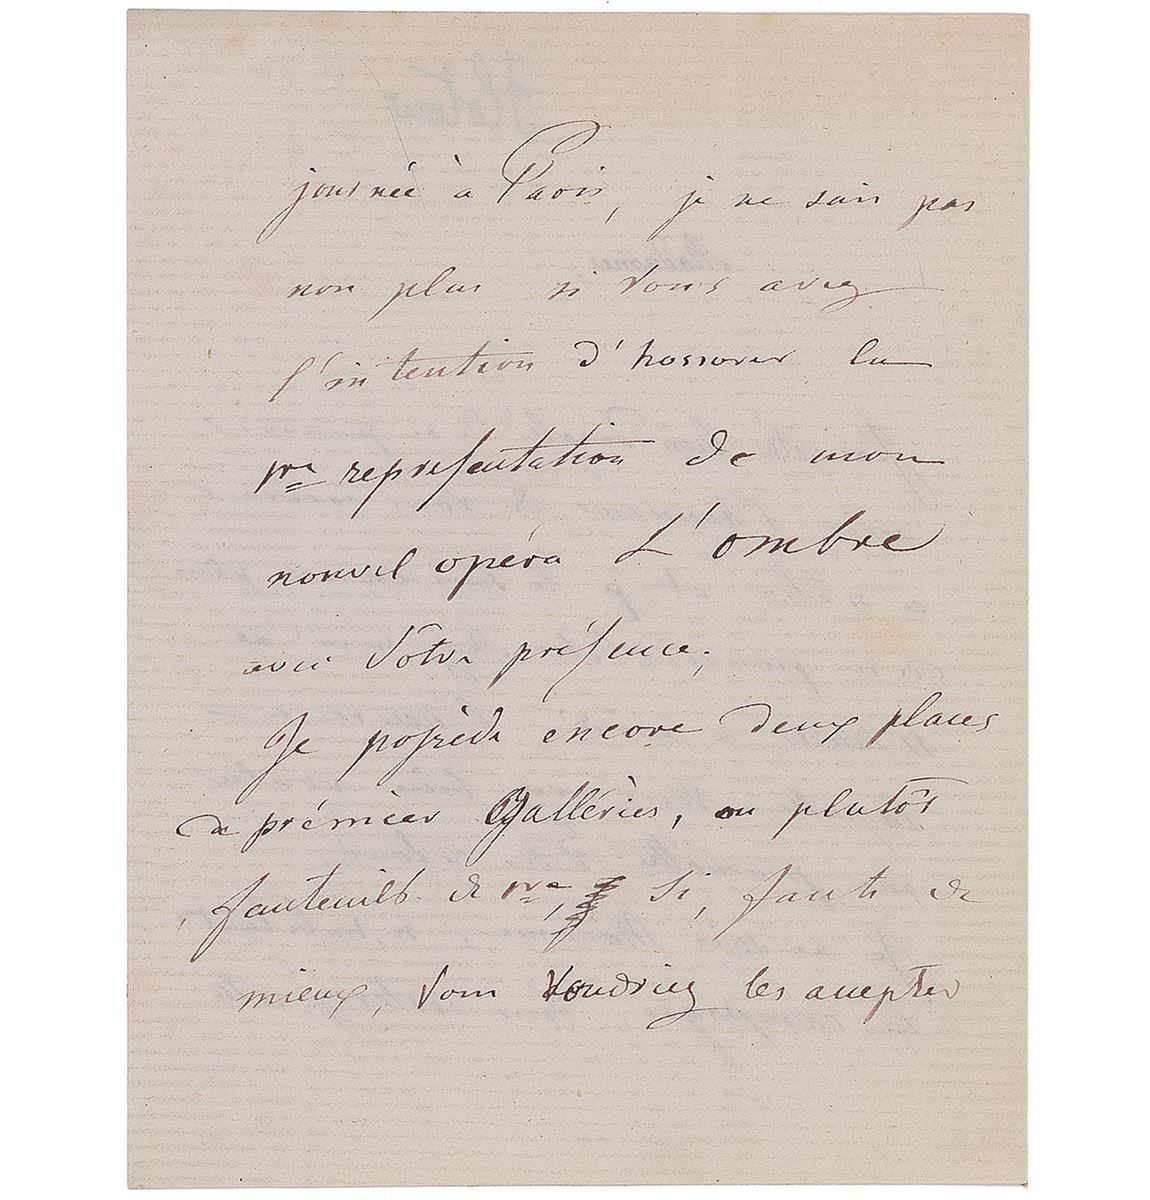 journée à Paris, je ne sais pas
non plus si vous avez
l'intention d'honorer la
1re representation de mon
nouvel opéra L'ombre
avec Vôtre présence.
Je possède encore deux places
de prémièr Galléries, ou plutôt
fauteuils de 1re, Si, faute de
mieux, Vous Voudriez les accepter